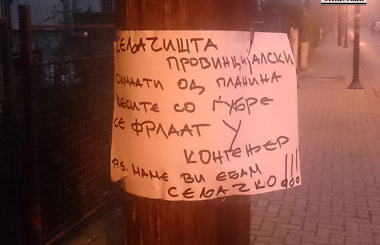 СЕЉАЧИШТА
ПРОВИНЦИЈАЛСКИ
СИМНАТИ ОД ПЛАНИНА
ЌЕСИТЕ СО ЃУБРЕ
СЕ ФРЛААТ У
КОНТЕЊЕР
P.S. МАМЕ ВИ ЕБАМ
СЕЉАЧКО!!!